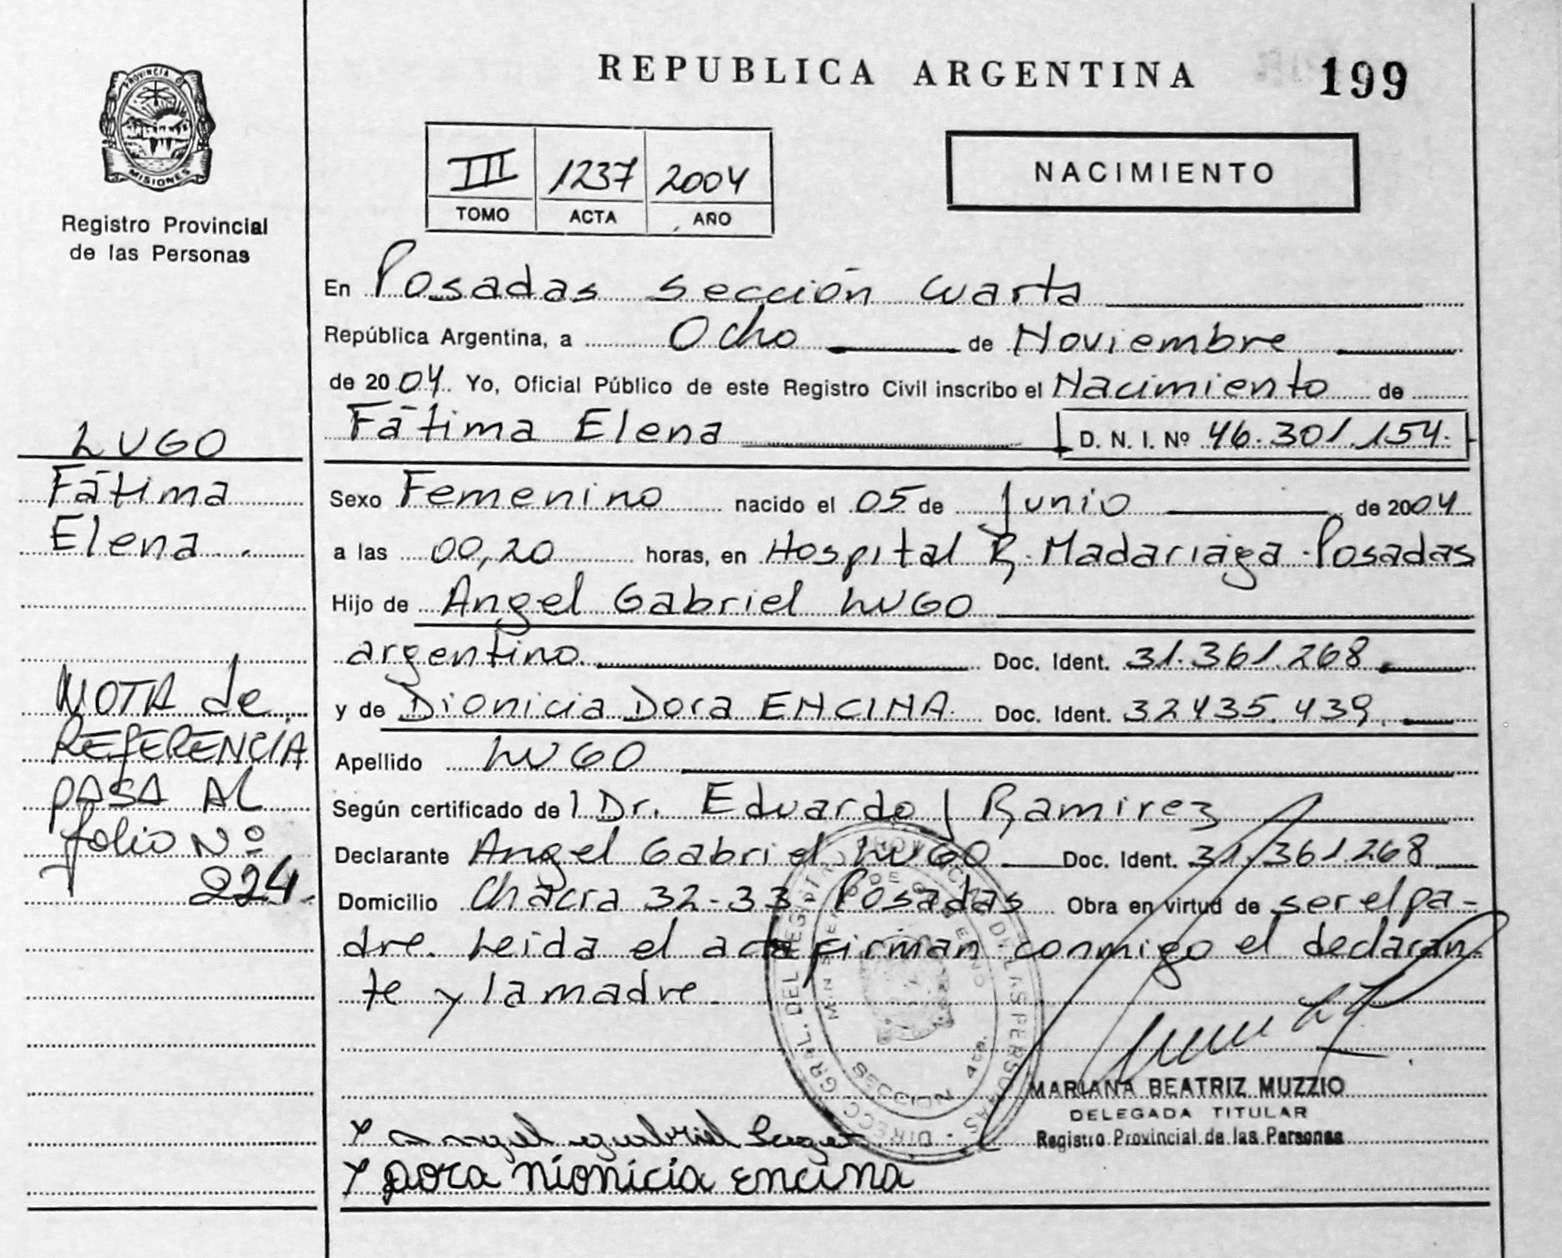 REPUBLICA ARGENTINA 199
PROVINCIA DE
MISIONES
Registro Provincial
de las Personas
III 1237 2004
TOMO ACTA AÑO
NACIMIENTO
En Posadas sección cuarta
República Argentina, a Ocho de Noviembre
de 2004. Yo, Oficial Público de este Registro Civil inscribo el Nacimiento de
Fátima Elena D. N. I. Nº 46.301.154.
LUGO
Fátima
Elena.
Sexo Femenino nacido el 05 de Junio de 2004
a las 00,20 horas, en Hospital R. Madariaga - Posadas
Hijo de Angel Gabriel LUGO
argentino. Doc. Ident. 31.361.268.
y de Dionicia Dora ENCINA. Doc. Ident. 32435.439.
Apellido LUGO
Según certificado de l Dr. Eduardo J Ramirez
Declarante Angel Gabriel LUGO Doc. Ident. 31.361.268
Domicilio Chacra 32-33 Posadas Obra en virtud de ser el pa-
dre. Leida el acta firman conmigo el declaran-
te y la madre.
NOTA de
REFERENCIA
PASA AL
folio Nº
224.
DIRECC. GRAL. DEL REGISTRO PROVINCIAL DE LAS PERSONAS
MINISTERIO DE GOBIERNO
SECCION 4ta.
MARIANA BEATRIZ MUZZIO
DELEGADA TITULAR
Registro Provincial de las Personas
x angel gabriel Lugo
x Dora Dionicia encina